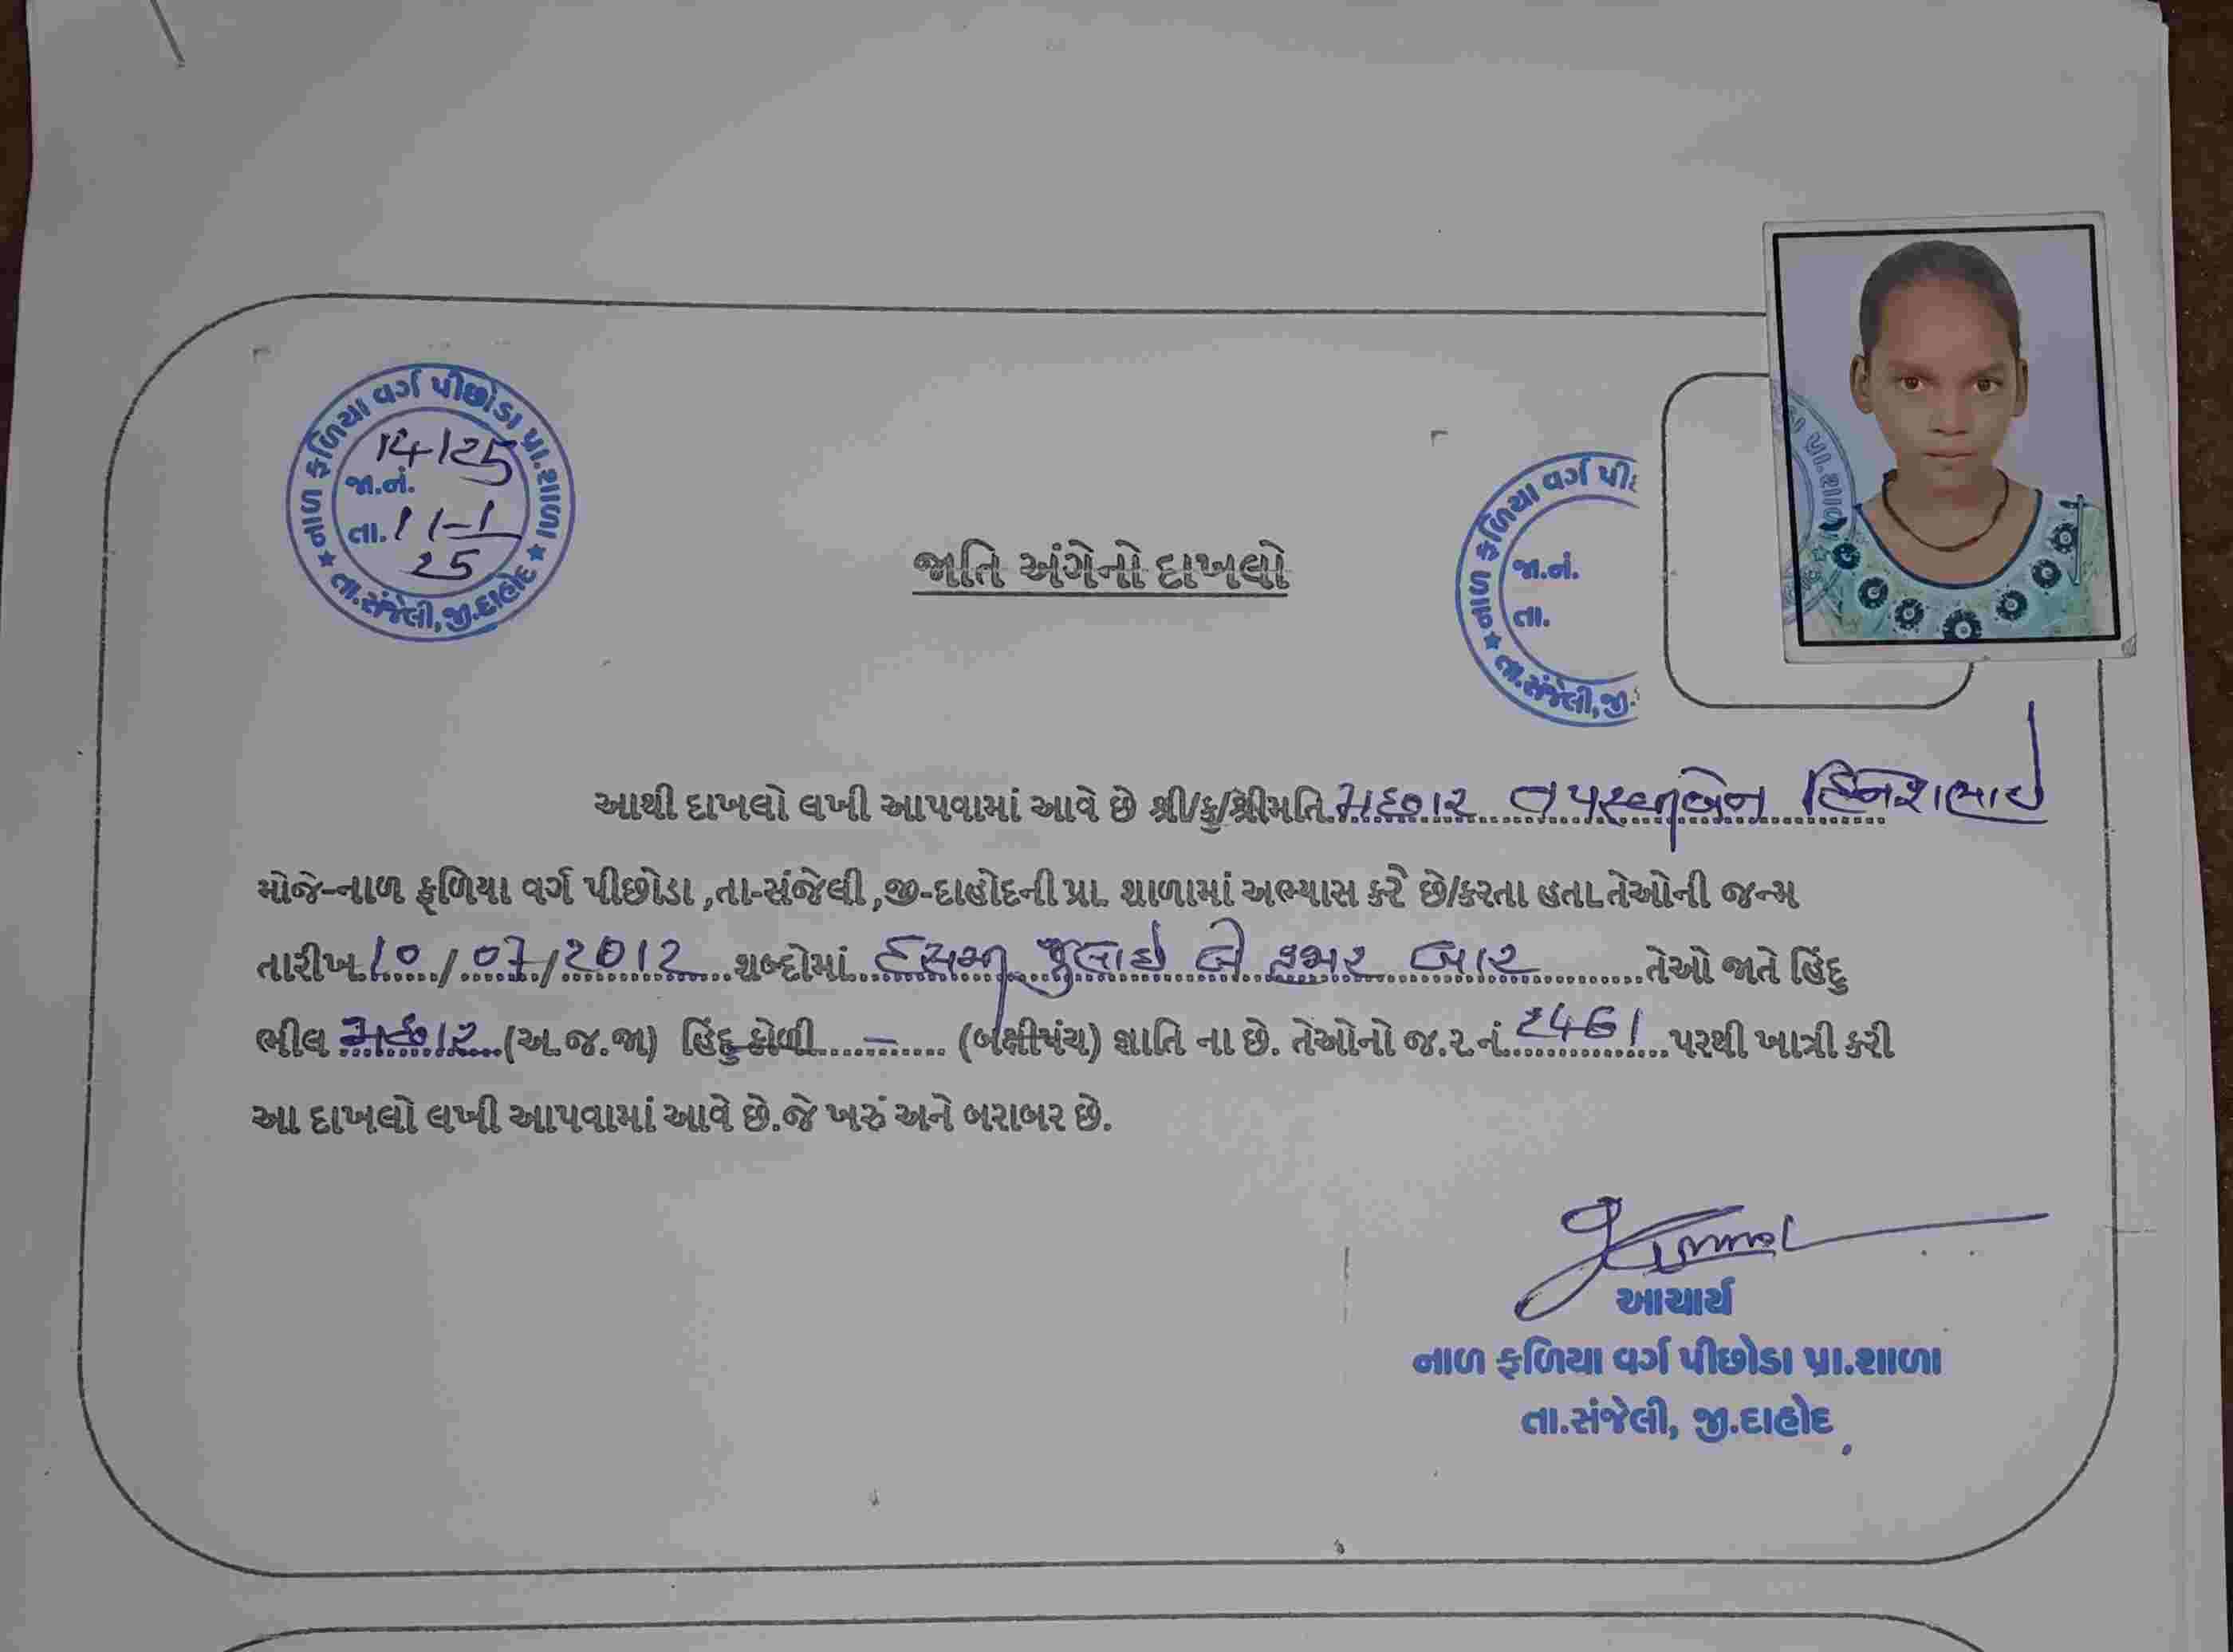 નાળ ફળિયા વર્ગ પીછોડા પ્રા.શાળા
જા.નં. 14/25
તા. 11-1
25
★ તા.સંજેલી,જી.દાહોદ ★
જાતિ અંગેનો દાખલો
નાળ ફળિયા વર્ગ પી
જા.નં.
તા.
★ તા.સંજેલી,જી.
પ્રા.શાળ
આથી દાખલો લખી આપવામાં આવે છે શ્રી/કુ/શ્રીમતિ મછાર દિનેશભાઈ
મોજે-નાળ ફળિયા વર્ગ પીછોડા ,તા-સંજેલી ,જી-દાહોદની પ્રા. શાળામાં અભ્યાસ કરે છે/કરતા હતા.તેઓની જન્મ
તારીખ 10/07/2012 શબ્દોમાં દસમી જુલાઈ બે હજાર બાર તેઓ જાતે હિંદુ
ભીલ મછાર (અ.જ.જા) હિંદુ કોળી - (બક્ષીપંચ) જ્ઞાતિ ના છે. તેઓનો જ.ર.નં. 2461 પરથી ખાત્રી કરી
આ દાખલો લખી આપવામાં આવે છે.જે ખરું અને બરાબર છે.
આચાર્ય
નાળ ફળિયા વર્ગ પીછોડા પ્રા.શાળા
તા.સંજેલી, જી.દાહોદ